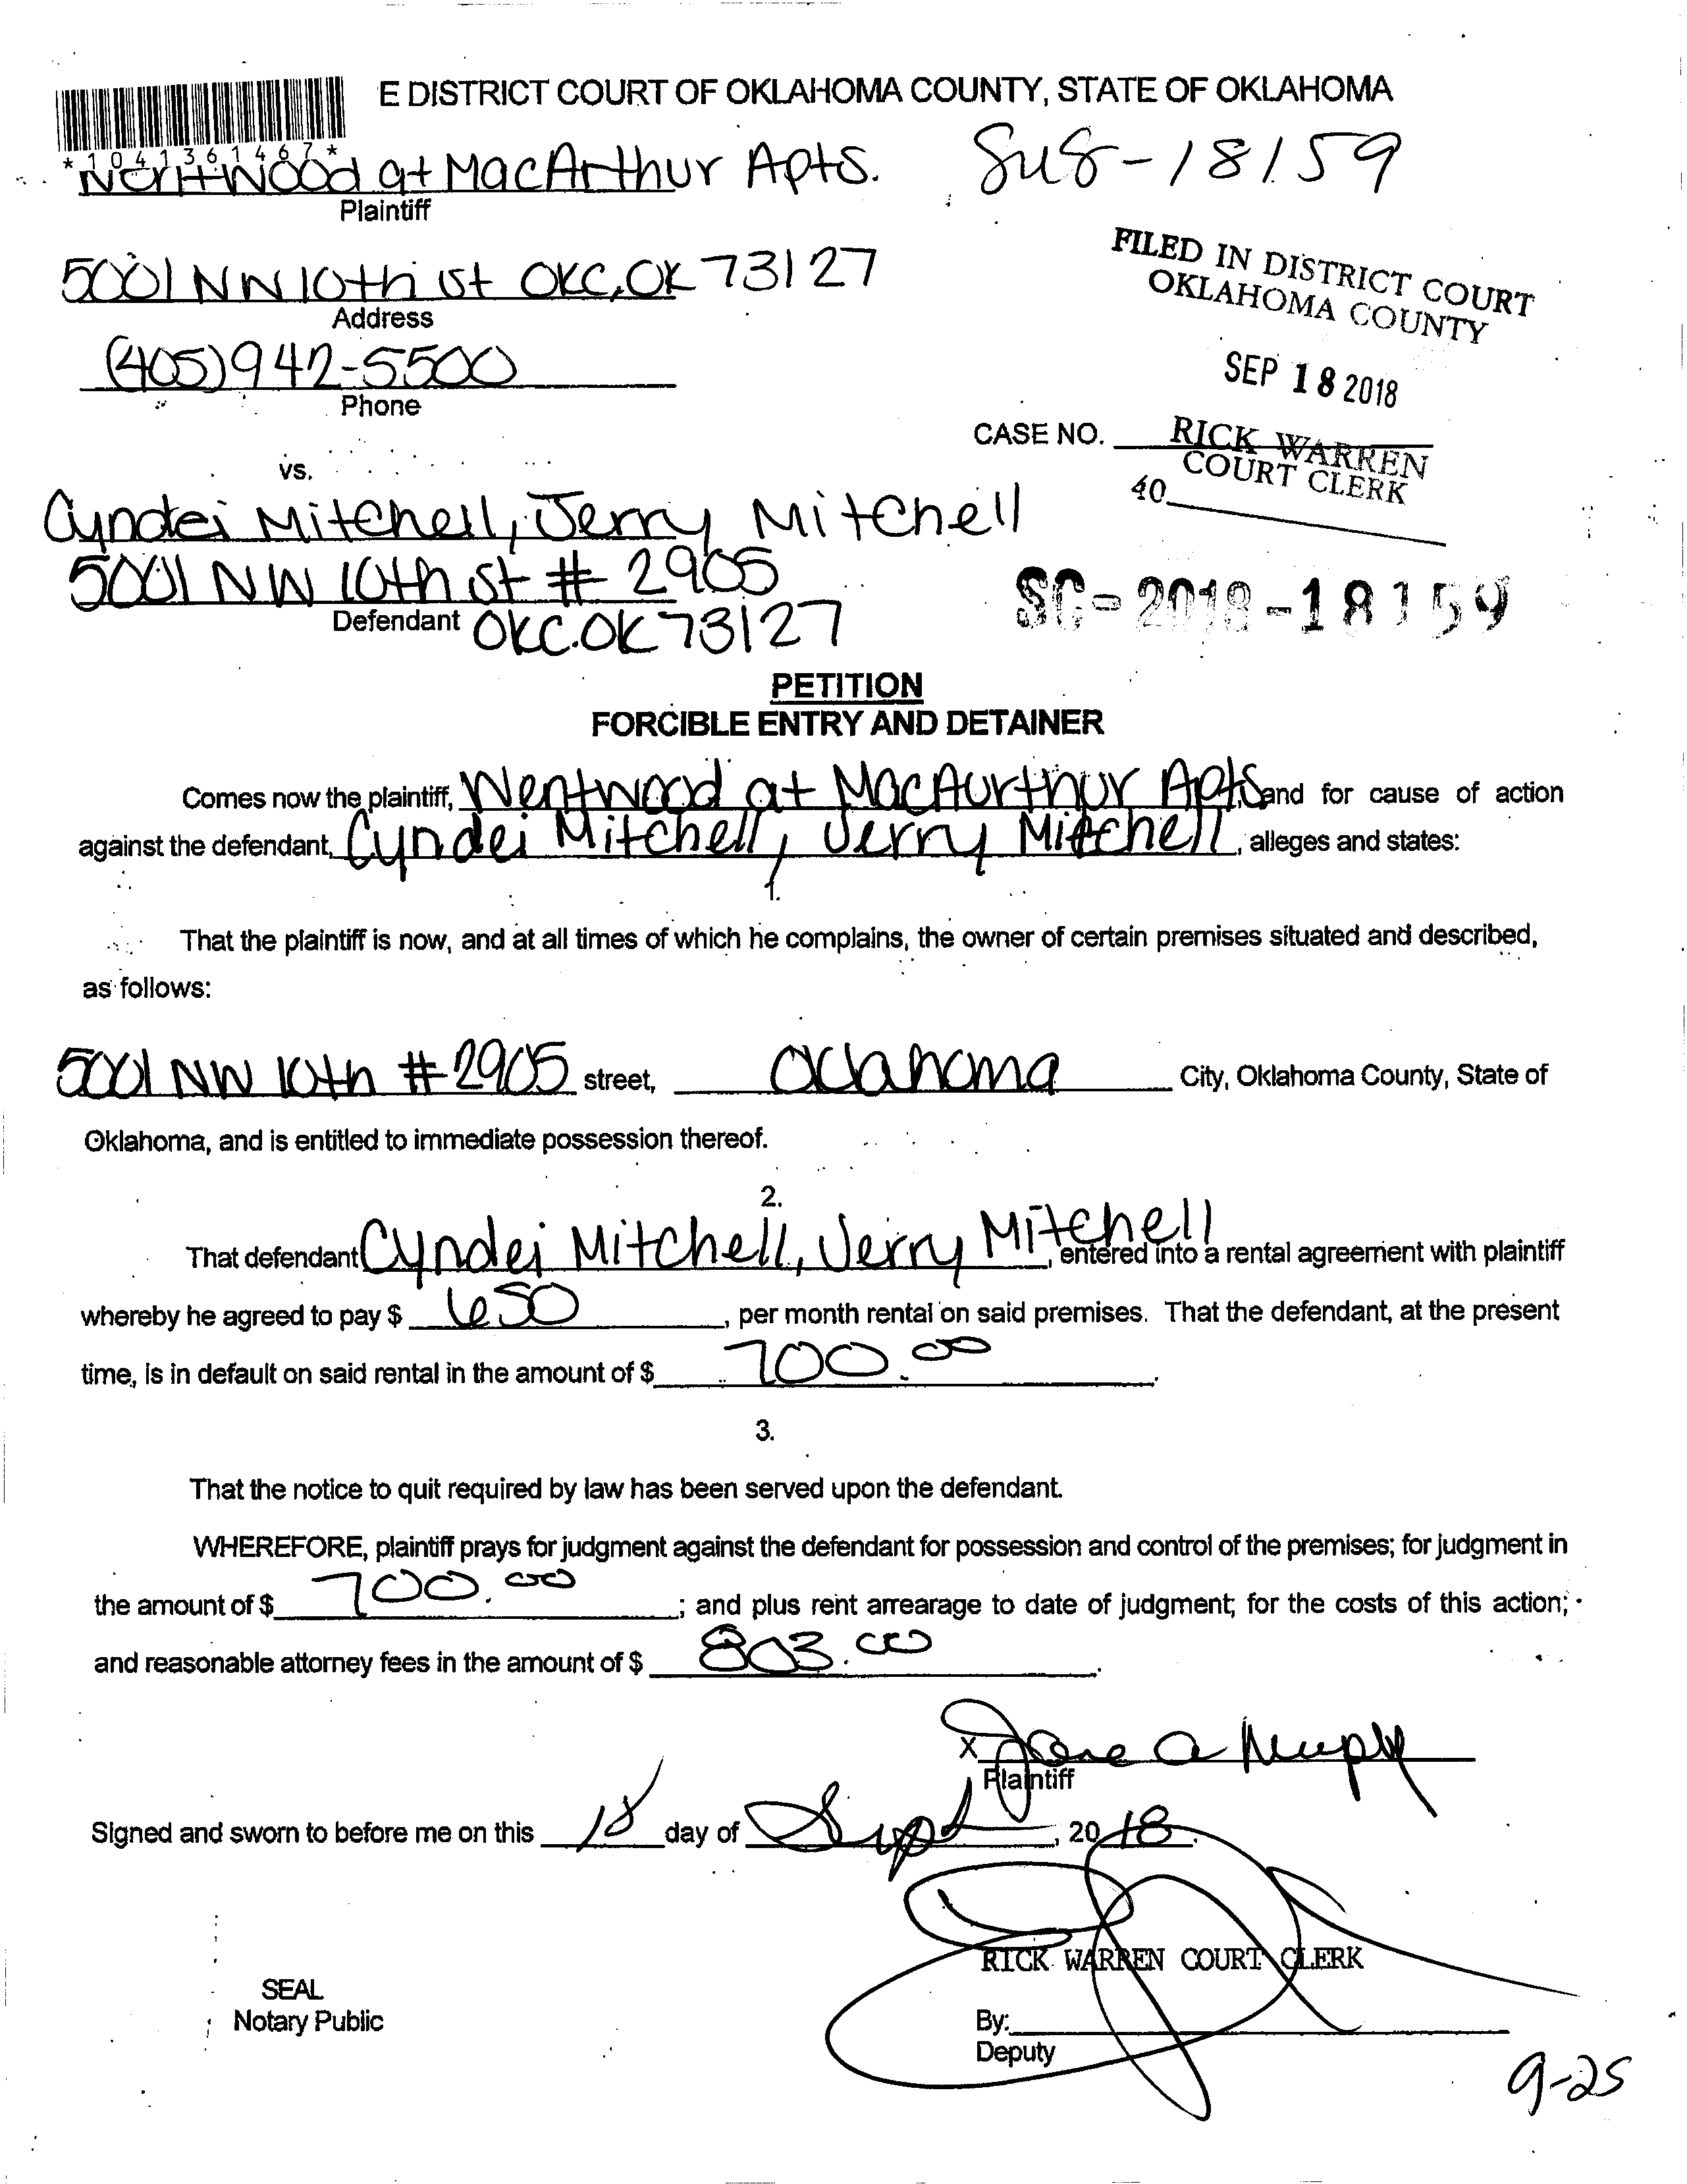 E DISTRICT COURT OF OKLAHOMA COUNTY, STATE OF OKLAHOMA
*1041361467*
at MacArthur Apts.
-18159
Plaintiff
5001 NW 10th st OKC, OK 73127
Address
(405)942-5500
Phone
FILED IN DISTRICT COURT
OKLAHOMA COUNTY
SEP 18 2018
RICK WARREN
COURT CLERK
40
CASE NO.
vs.
Cyndei Mitchell, Jerry Mitchell
5001 NW 10th st # 2905
Defendant OKC. OK 73127
SC-2018-18159
PETITION
FORCIBLE ENTRY AND DETAINER
Comes now the plaintiff, Wentwood at MacAurthur Apts, and for cause of action
against the defendant, Cyndei Mitchell, Jerry Mitchell, alleges and states:
1.
That the plaintiff is now, and at all times of which he complains, the owner of certain premises situated and described,
as follows:
5001 NW 10th #2905 street, Oclahoma City, Oklahoma County, State of
Oklahoma, and is entitled to immediate possession thereof.
2.
That defendant Cyndei Mitchell, Jerry Mitchell, entered into a rental agreement with plaintiff
whereby he agreed to pay $ 650, per month rental on said premises. That the defendant, at the present
time, is in default on said rental in the amount of $ 700.00.
3.
That the notice to quit required by law has been served upon the defendant.
WHEREFORE, plaintiff prays for judgment against the defendant for possession and control of the premises; for judgment in
the amount of $ 700.00; and plus rent arrearage to date of judgment; for the costs of this action;
and reasonable attorney fees in the amount of $ 803.00.
X
Plaintiff
Signed and sworn to before me on this 18 day of Sept, 2018.
RICK WARREN COURT CLERK
SEAL
Notary Public
By:
Deputy
9-25